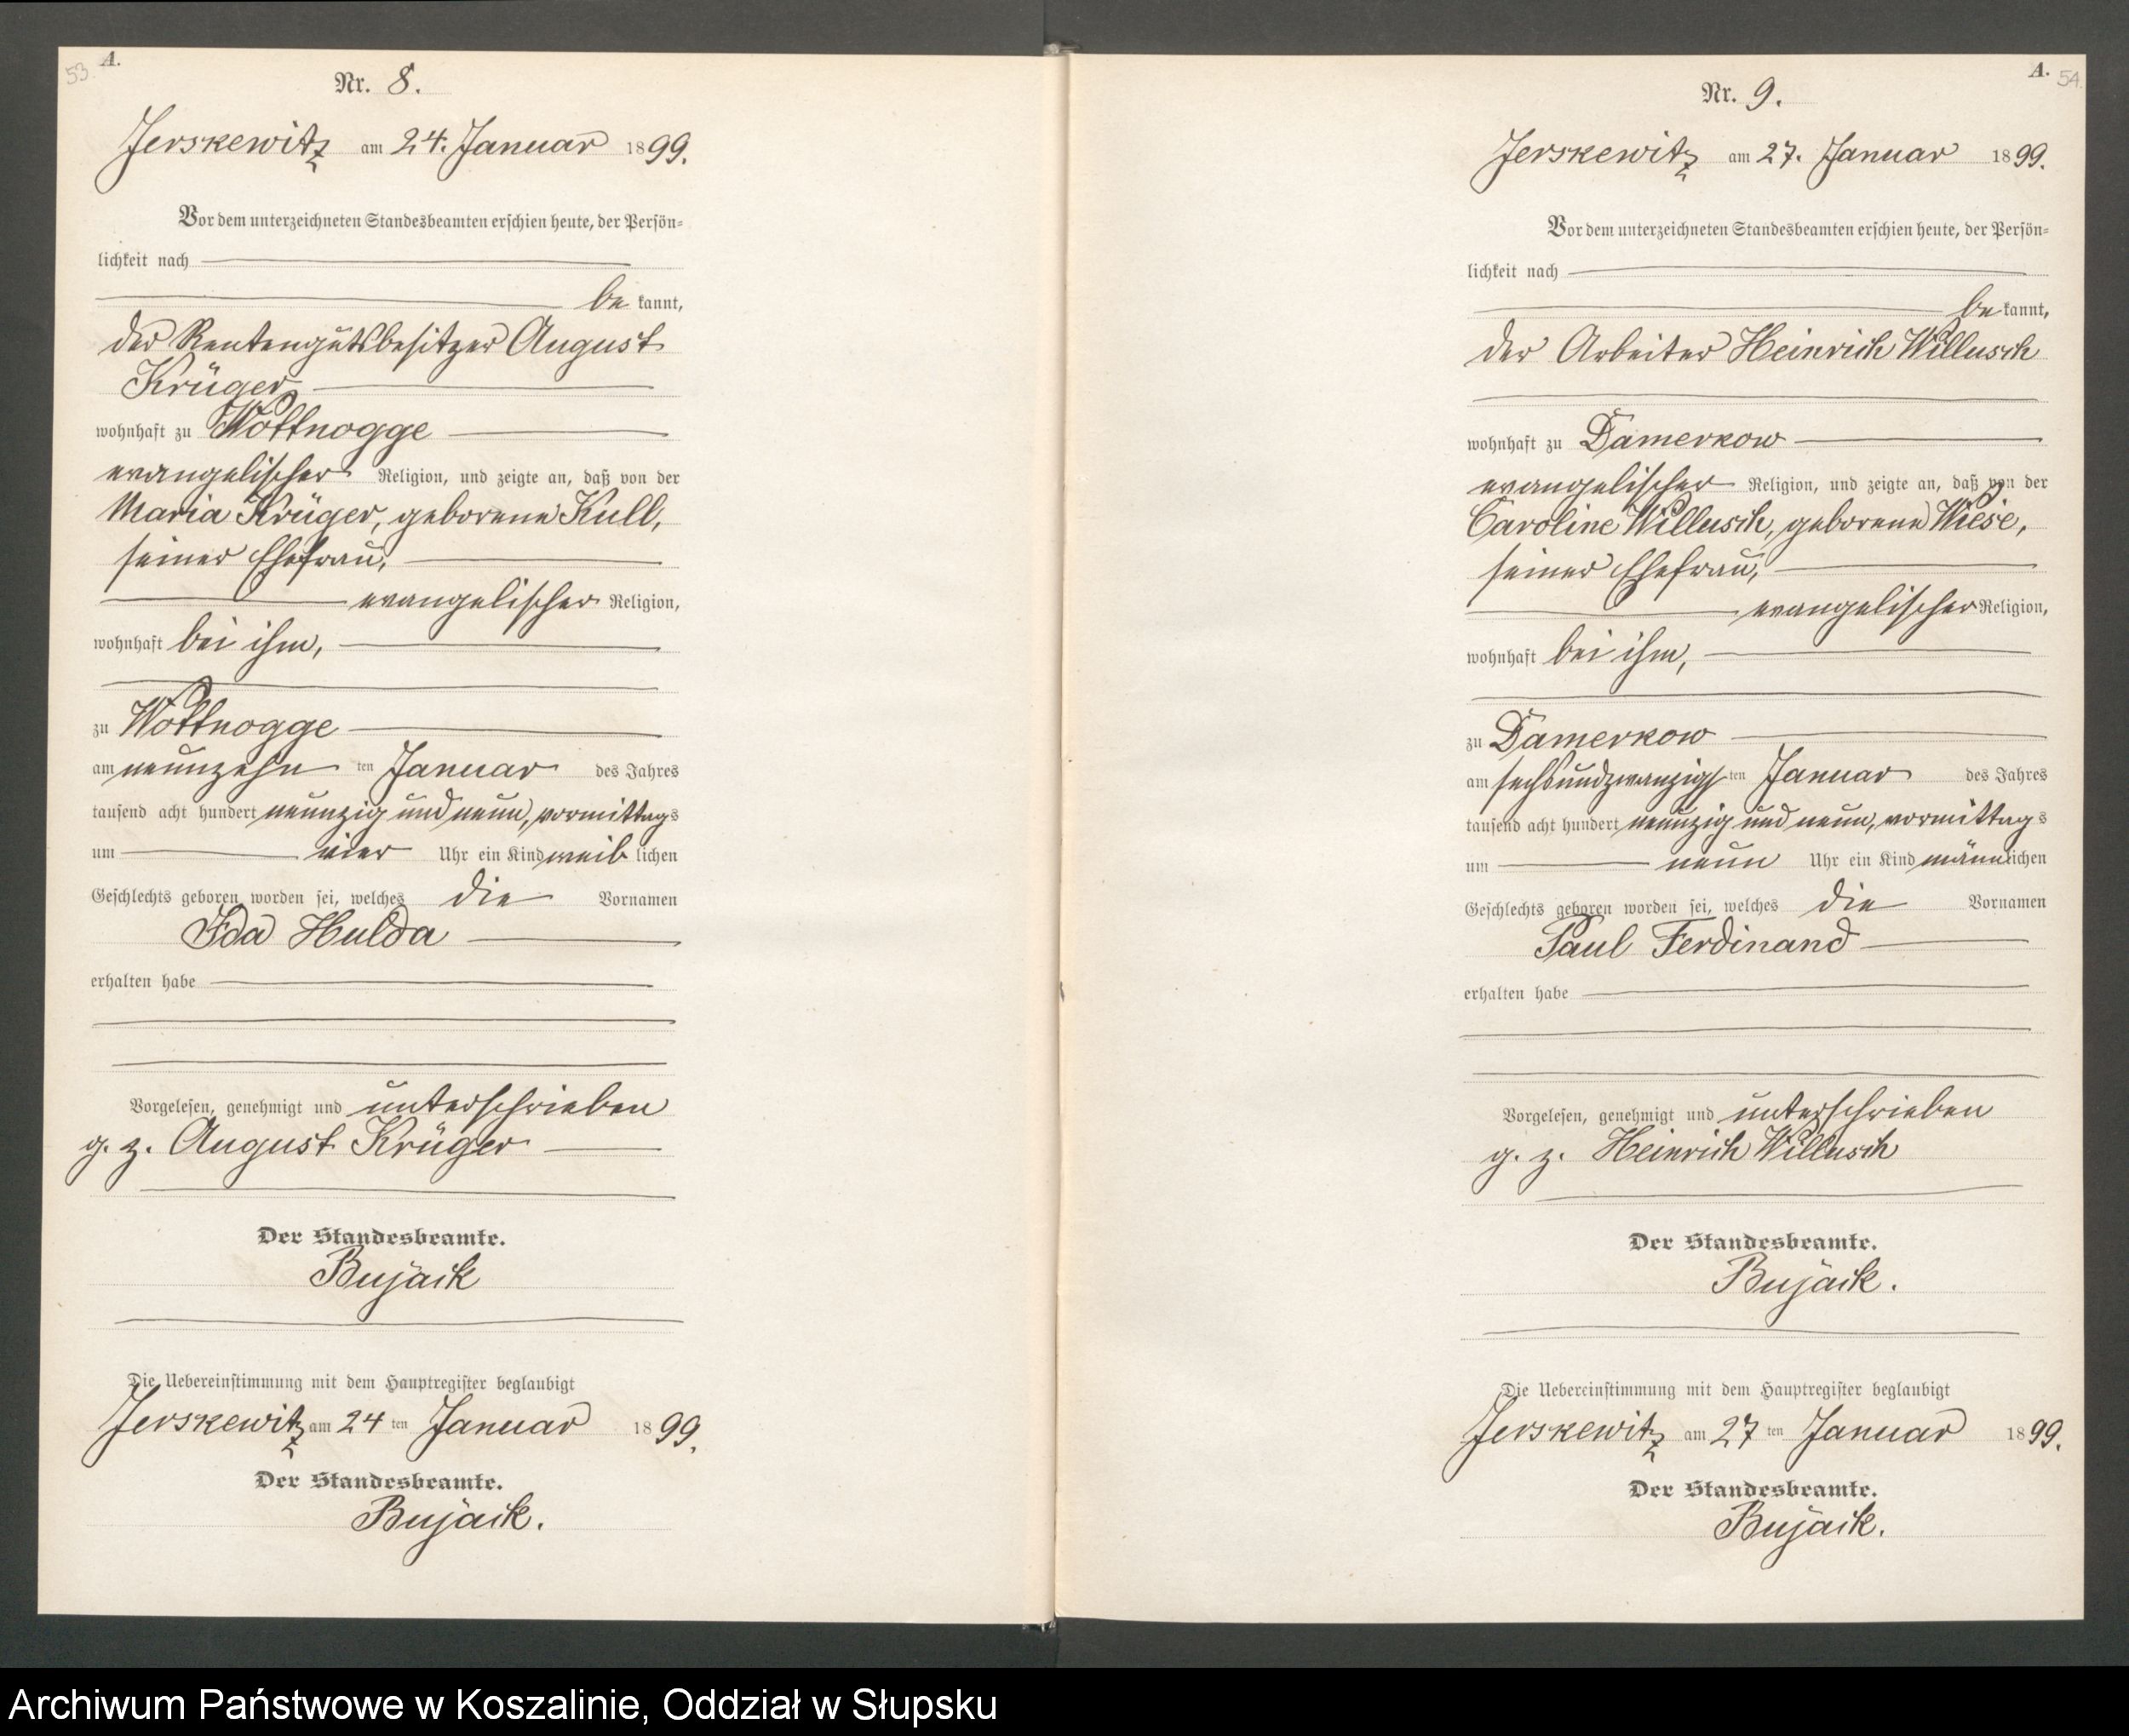 53. A.
Nr. 8.
Jerskewitz am 24. Januar 1899.
Vor dem unterzeichneten Standesbeamten erschien heute, der Persön-
lichkeit nach
be kannt,
der Rentengutsbesitzer August
Krüger
wohnhaft zu Wottnogge
evangelischer Religion, und zeigte an, daß von der
Maria Krüger, geborene Kull,
seiner Ehefrau,
evangelischer Religion,
wohnhaft bei ihm,
zu Wottnogge
am neunzehn ten Januar des Jahres
tausend acht hundert neunzig und neun, vormittags
um vier Uhr ein Kind weib lichen
Geschlechts geboren worden sei, welches die Vornamen
Ida Hulda
erhalten habe
Vorgelesen, genehmigt und unterschrieben
g. z. August Krüger
Der Standesbeamte.
Bujack
Die Uebereinstimmung mit dem Hauptregister beglaubigt
Jerskewitz am 24 ten Januar 1899.
Der Standesbeamte.
Bujack.
A. 54
Nr. 9.
Jerskewitz am 27. Januar 1899.
Vor dem unterzeichneten Standesbeamten erschien heute, der Persön-
lichkeit nach
be kannt,
der Arbeiter Heinrich Willusch
wohnhaft zu Damerkow
evangelischer Religion, und zeigte an, daß von der
Caroline Willusch, geborene Wiese,
seiner Ehefrau,
evangelischer Religion,
wohnhaft bei ihm,
zu Damerkow
am sechsundzwanzigs ten Januar des Jahres
tausend acht hundert neunzig und neun, vormittags
um neun Uhr ein Kind männlichen
Geschlechts geboren worden sei, welches die Vornamen
Paul Ferdinand
erhalten habe
Vorgelesen, genehmigt und unterschrieben
g. z. Heinrich Willusch
Der Standesbeamte.
Bujack.
Die Uebereinstimmung mit dem Hauptregister beglaubigt
Jerskewitz am 27 ten Januar 1899.
Der Standesbeamte.
Bujack.
Archiwum Państwowe w Koszalinie, Oddział w Słupsku